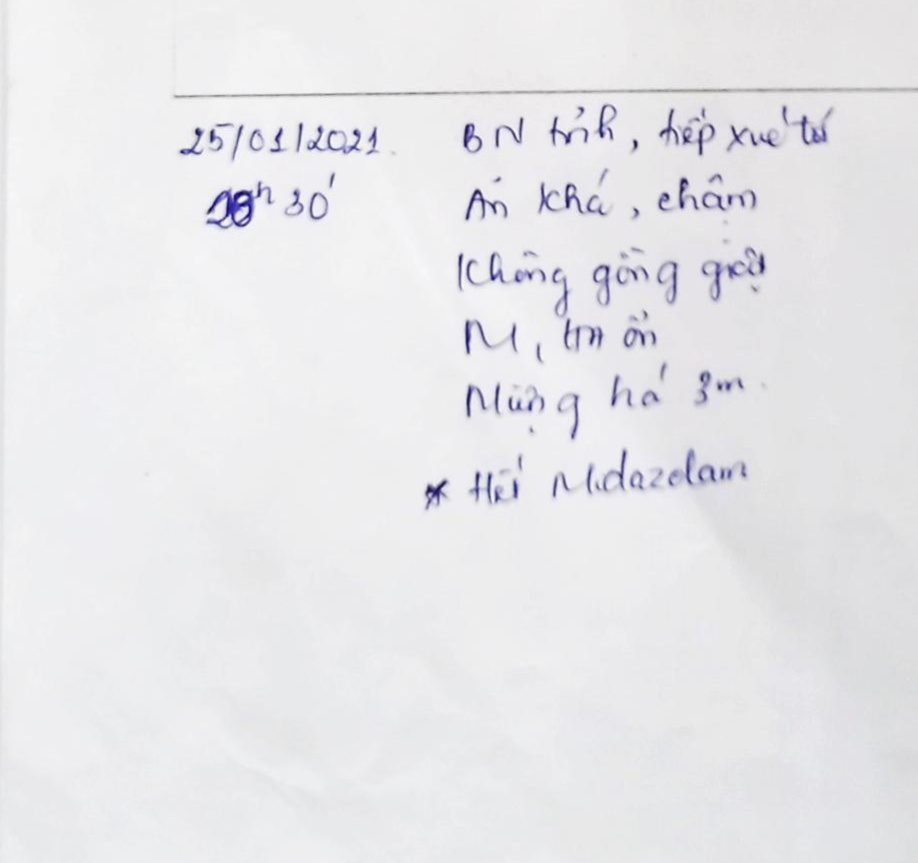 25/01/2021. BN tỉnh, tiếp xúc tốt
30' Ăn khá, chậm
Không gồng giật
M, tro ổn
Miệng há 3cm.
* Hết Midazolam